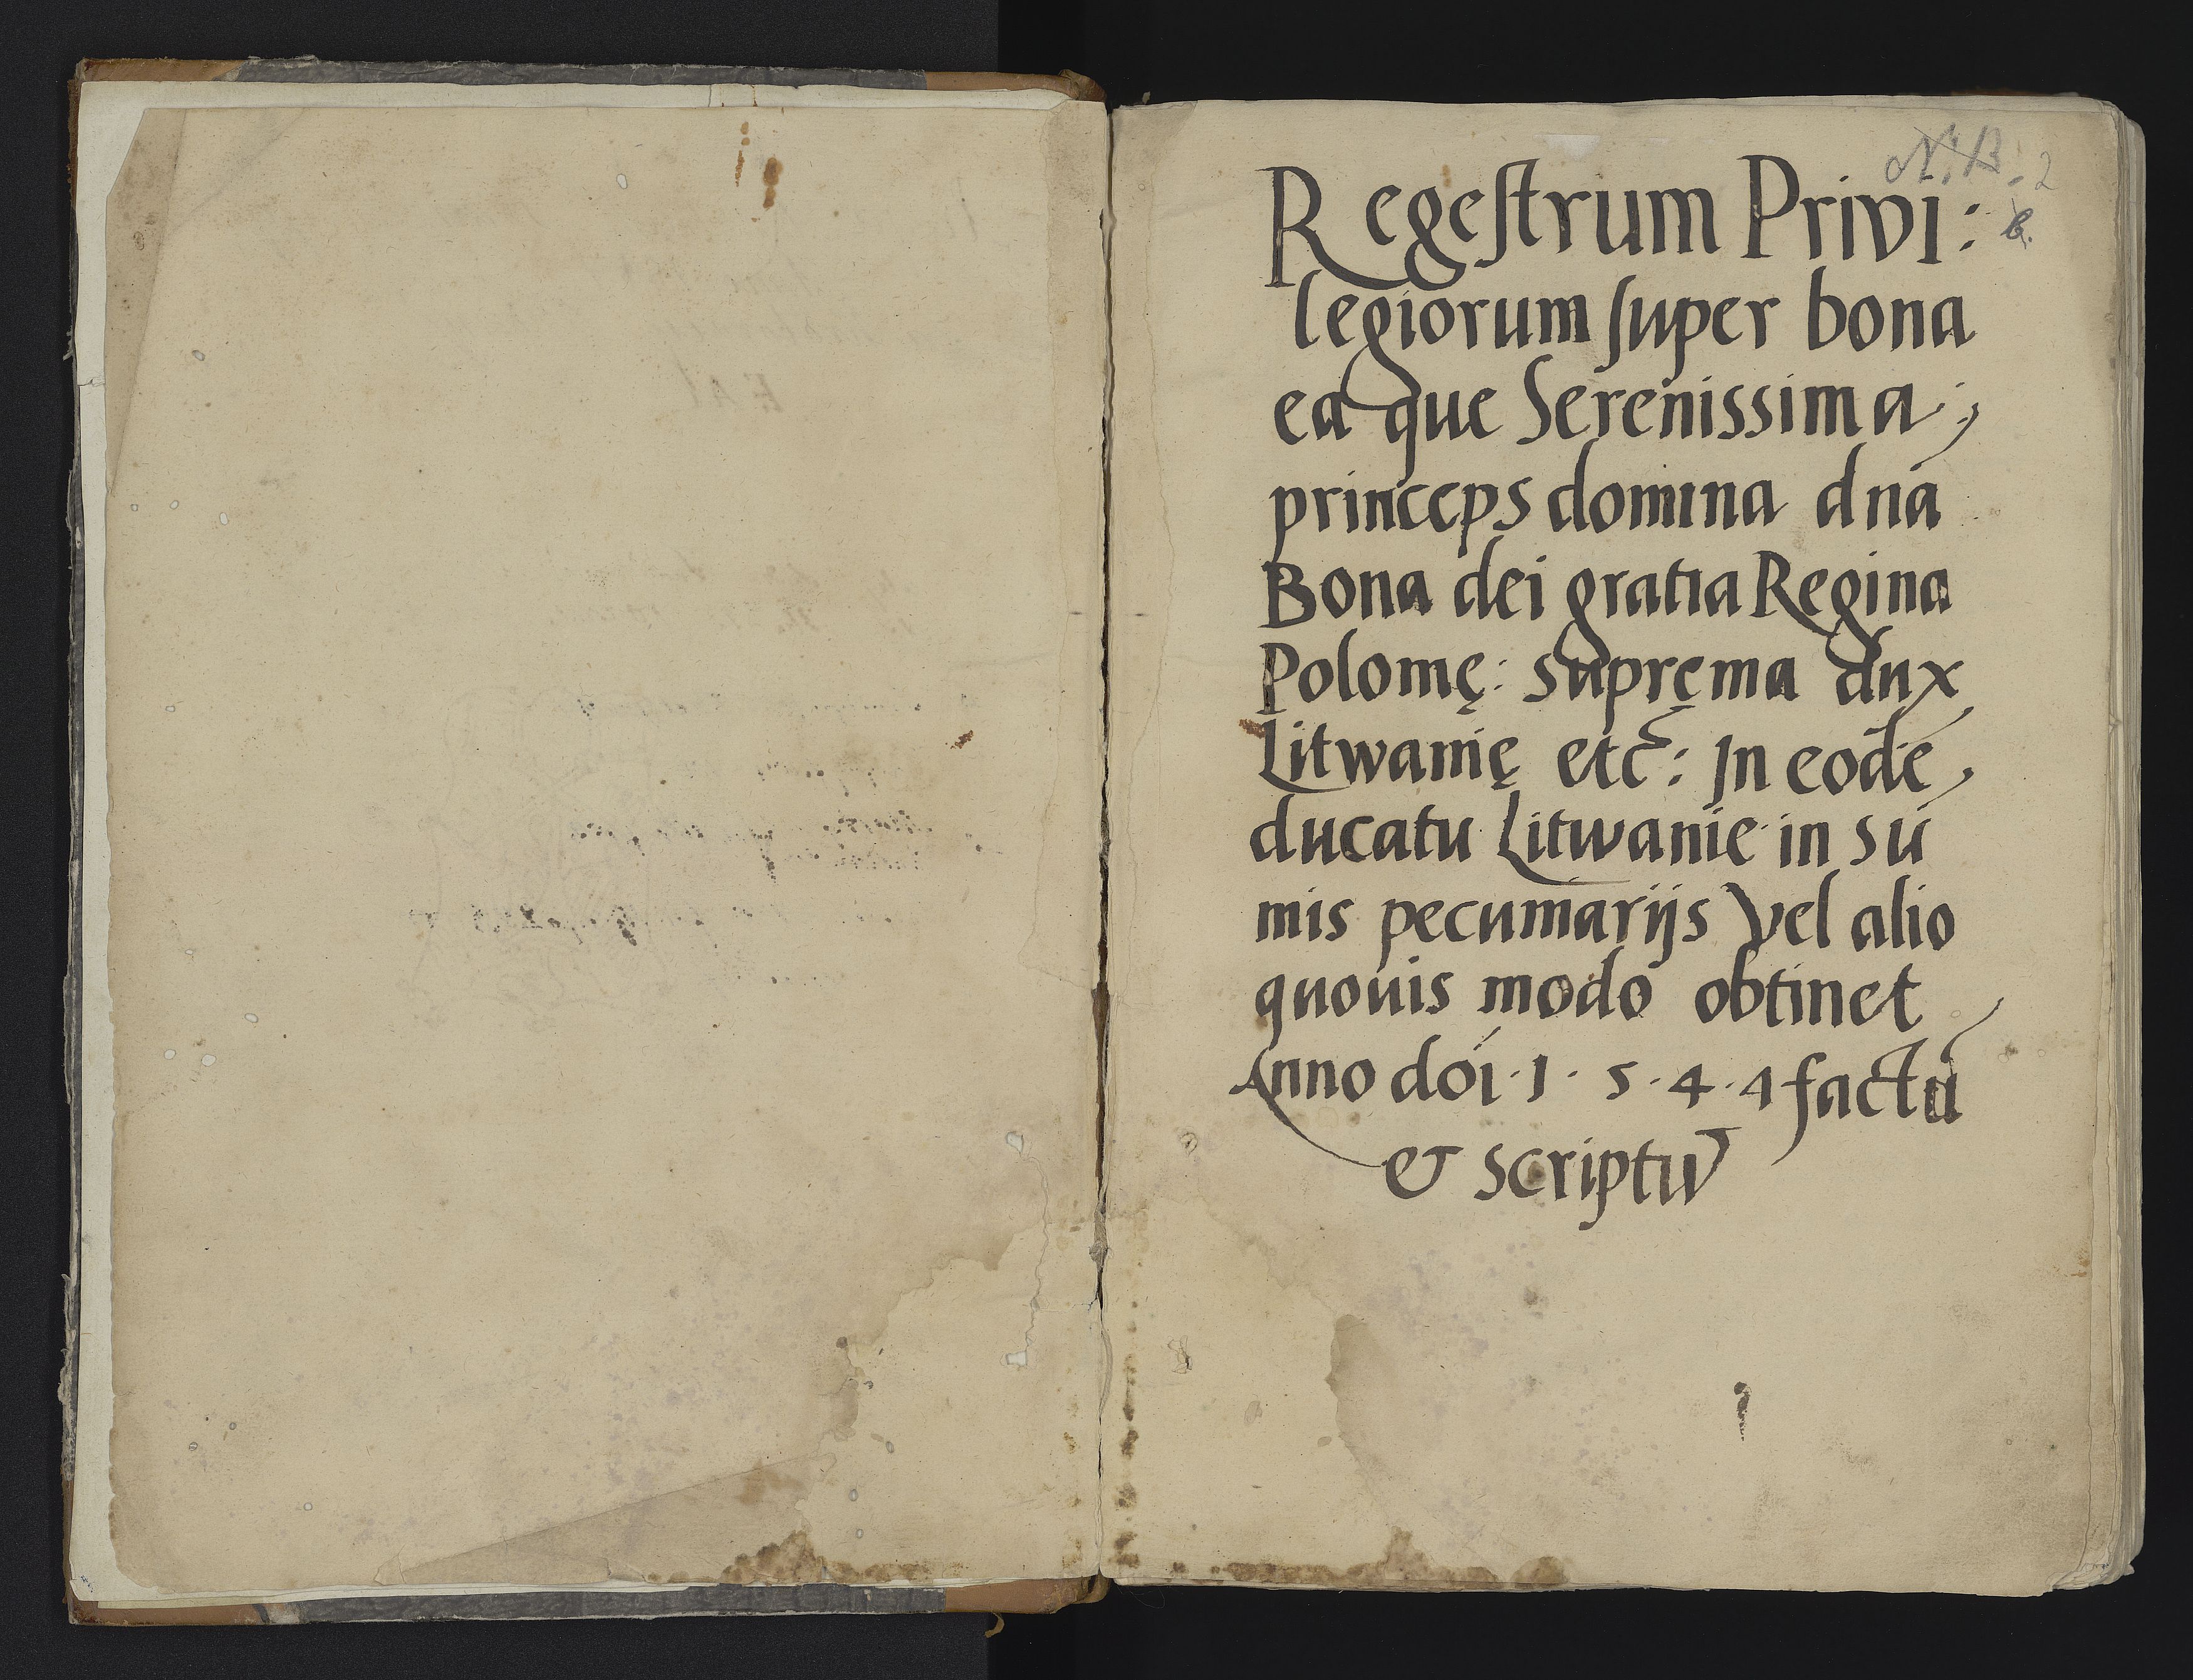 N. B. 2
Regestrum Privi: b.
legiorum super bona
ea que Serenissima;
princeps domina dna
Bona dei gratia Regina
Polonię: supręma dux
Litwanię etc: In eodē
ducatu Litwanie in sū
mis pecuniarijs vel alio
quouis modo obtinet
Anno doi · 1 · 5 · 4 · 4 factū
& scriptū